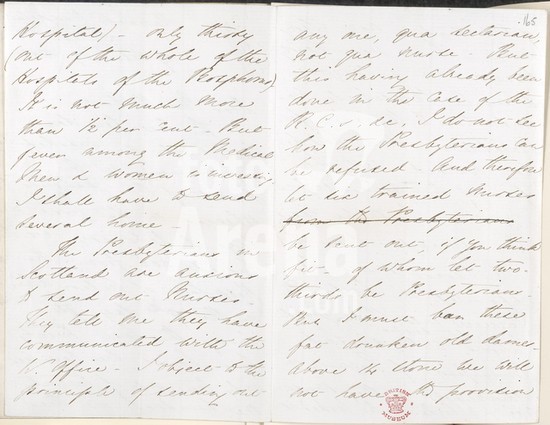 Hospital) - only thirty
(out of the whole of the
Hospitals of the Bosphorus)
It is not much more
than 1/2 per cent - But
fever among the Medical
Men & women is increasing
I shall have to send
several home -
The Presbyterians in
Scotland are anxious
to send out Nurses -
They tell me they have
communicated with the
W. Office - I object to the
principle of sending out
165
any one, qua sectarian,
not qua nurse - But
this having already been
done in the case of the
R.C.s &c, I do not see
how the Presbyterians can
be refused - And therefore
let six trained Nurses
from the Presbyterians
be sent out, if you think
fit - of whom let two-
thirds be Presbyterians -
But I must bar these
fat drunken old dames -
Above 14 stone we will
not have - The provision
BRITISH
MUSEUM
Arena
.com